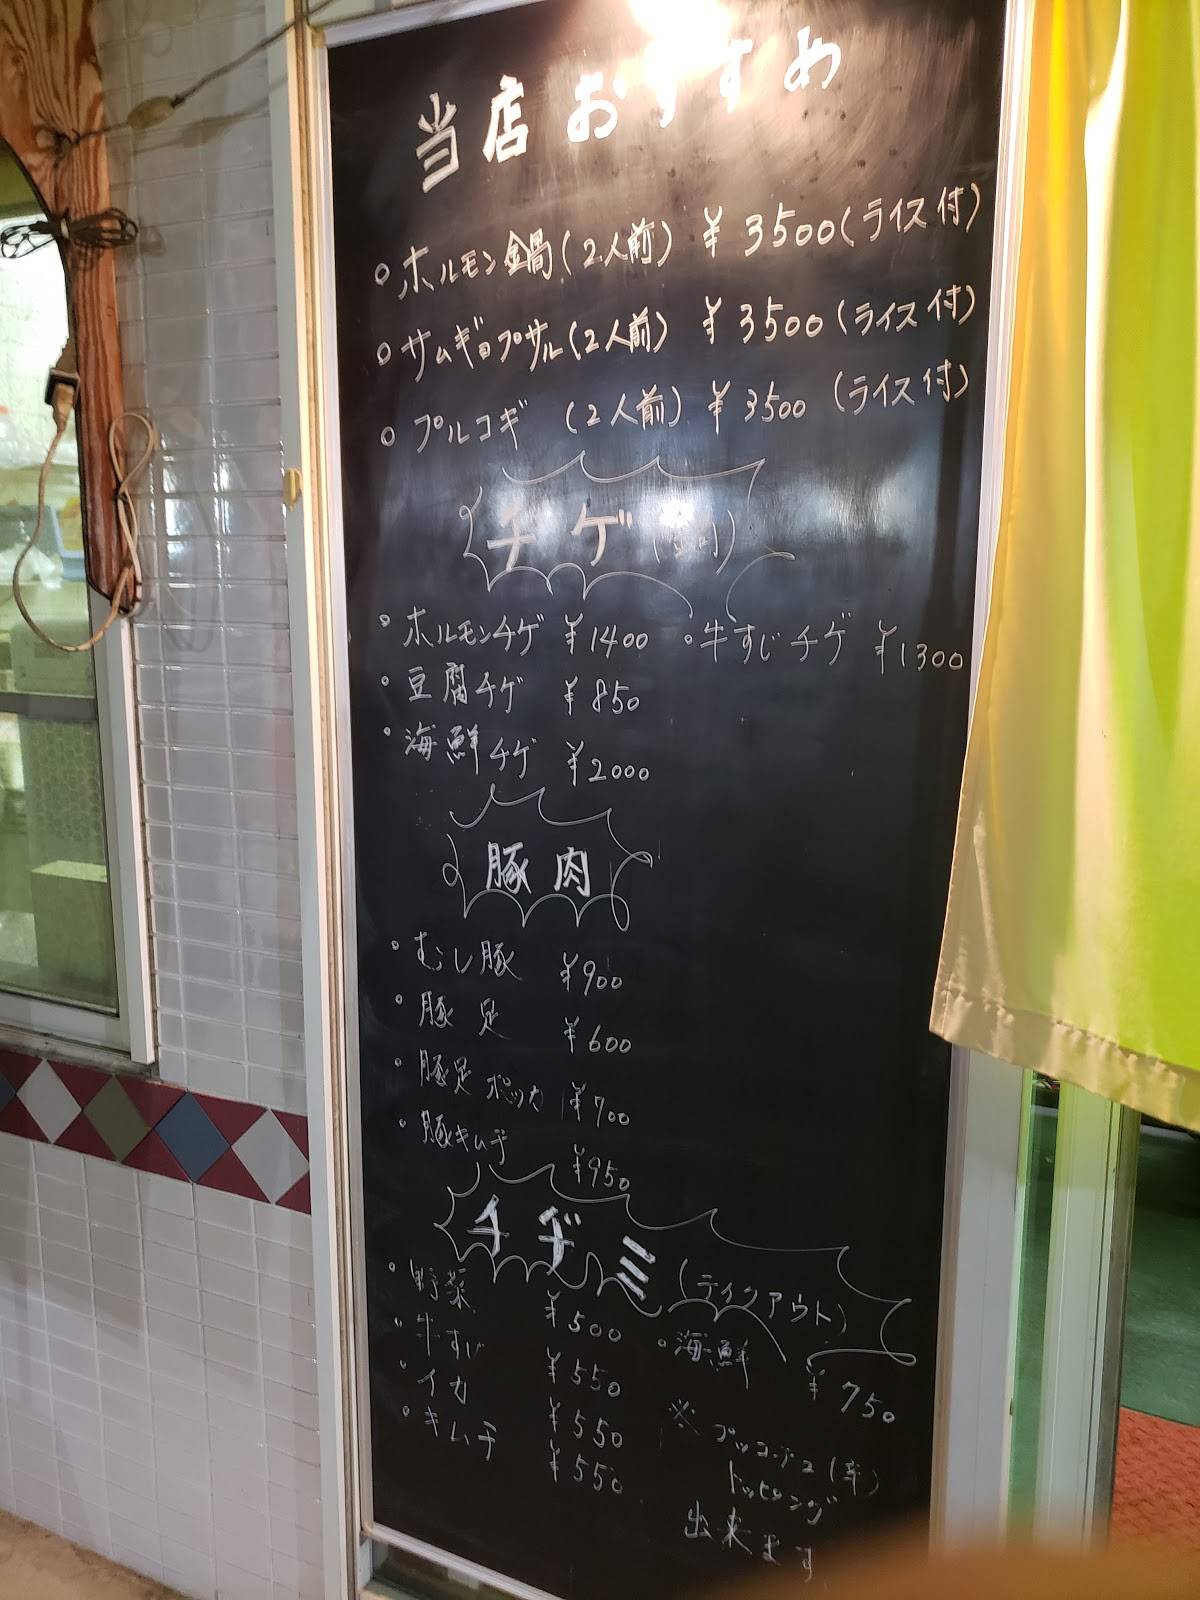 当店おすすめ
○ ホルモン鍋(2人前) ¥3500(ライス付)
○ サムギョプサル(2人前) ¥3500(ライス付)
○ プルコギ (2人前) ¥3500 (ライス付)
チゲ(鍋)
○ ホルモンチゲ ¥1400 ○ 牛すじチゲ ¥1300
○ 豆腐チゲ ¥850
○ 海鮮チゲ ¥2000
豚肉
○ むし豚 ¥900
○ 豚足 ¥600
○ 豚足 ¥700
○ 豚キムチ ¥950
チヂミ (テイクアウト)
○ 野菜 ¥500 ○ 海鮮 ¥750
○ 牛すじ ¥550
○ イカ ¥550
○ キムチ ¥550
※ プッコチュ(辛)
トッピング
出来ます